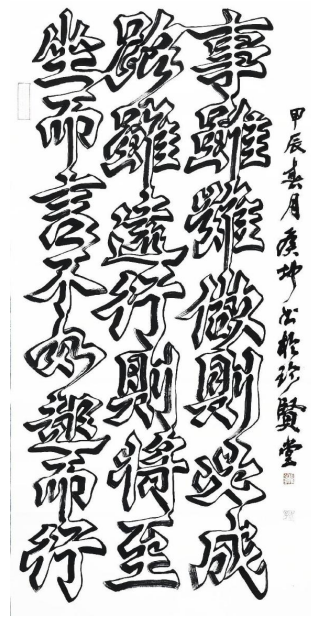 事雖難做則必成
路雖遠行則將至
坐而言不如起而行
甲辰春月侯坤书於珍賢堂